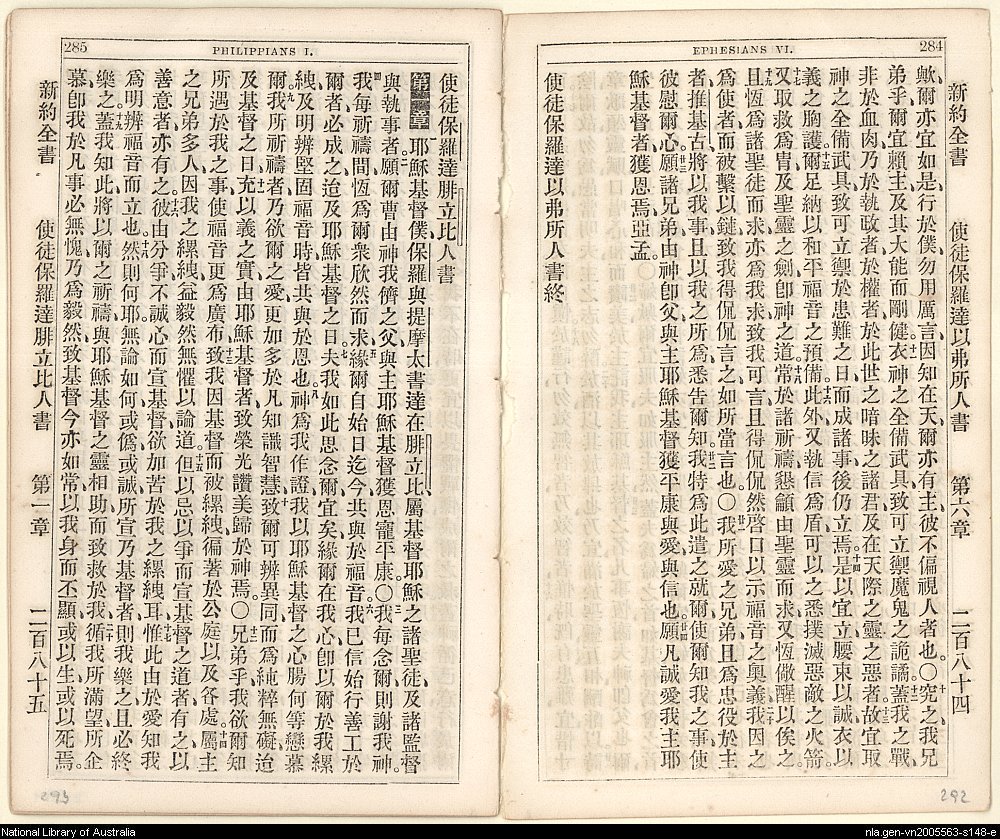 284
EPHESIANS VI.
新約全書 使徒保羅達以弗所人書 第六章 二百八十四
歟、爾亦宜如是行於僕、勿用厲言、因知在天、爾亦有主、彼不偏視人者也。〇究之我兄
弟乎、爾宜賴主、及其大能而剛健、衣神之全備武具、致可立禦魔鬼之詭譎、蓋我之戰、
非於血肉、乃於執政者、於權者、於此世之暗昧之諸君、及在天際之靈之惡者。故宜取
神之全備武具、致可立禦於患難之日、而成諸事後仍立焉。是以宜立、腰束以誠、衣以
義之胸護、爾足納以和平福音之預備、此外又執信爲盾、可以之悉撲滅惡敵之火箭。
又取救爲冑、及聖靈之劍、卽神之道、常於諸祈禱懇籲、由聖靈而求、又恆儆醒以俟之、
且恆爲諸聖徒而求、亦爲我求、致我可言、且得侃侃然啓口、以示福音之奧義、我因之
爲使者、而被繫以鏈、致我得侃侃言之、如所當言也。〇我所愛之兄弟、且爲忠役於主
者、推基古、將以我事、且以我之所爲、悉告爾知、我特爲此遣之就爾、使爾知我之事、使
彼慰爾心、願諸兄弟、由神卽父、與主耶穌基督、獲平康、與愛、與信也。願凡誠愛我主耶
穌基督者、獲恩焉、亞孟。
使徒保羅達以弗所人書終
285
PHILIPPIANS I.
使徒保羅達腓立比人書
第一章 耶穌基督僕保羅、與提摩太、書達在腓立比、屬基督耶穌之諸聖徒、及諸監督、
與執事者、願爾曹由神我儕之父、與主耶穌基督、獲恩寵平康。〇我每念爾、則謝我神。
我每祈禱間、恆爲爾衆欣然而求、緣爾自始日迄今、共與於福音、我已信始行善工於
爾者、必成之、迨及耶穌基督之日、夫我如此思念爾、宜矣、緣爾在我心、卽以爾於我縲
絏、及明辨堅固福音時、皆共與於恩也。神爲我作證、我以耶穌基督之心腸、何等戀慕
爾、我所祈禱者、乃欲爾之愛、更加多於凡知識智慧、致爾可辨異同、而爲純粹無礙、迨
及基督之日、充以義之實、由耶穌基督者、致榮光讚美歸於神焉。〇兄弟乎、我欲爾知
所遇於我之事、使福音更爲廣布、致我因基督而被縲絏、徧著於公庭、以及各處、屬主
之兄弟多人、因我之縲絏、益毅然無懼以論道。但以忌以爭而宣基督之道者、有之、以
善意者亦有之。彼由分爭、不誠心而宣基督、欲加苦於我之縲絏耳、惟此由於愛、知我
爲明辨福音而立也。然則何耶、無論如何、或僞或誠、所宣乃基督者、則我樂之、且必終
樂之、蓋我知此將以爾之祈禱、與耶穌基督之靈相助、而致救於我、循我所滿望、所企
慕、卽我於凡事必無愧、乃爲毅然、致基督今亦如常、以我身而丕顯、或以生或以死焉。
新約全書 使徒保羅達腓立比人書 第一章 二百八十五
293
292
National Library of Australia
nla.gen-vn2005563-s148-e